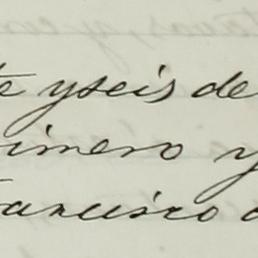 te y seis de
rimero y
Francisco